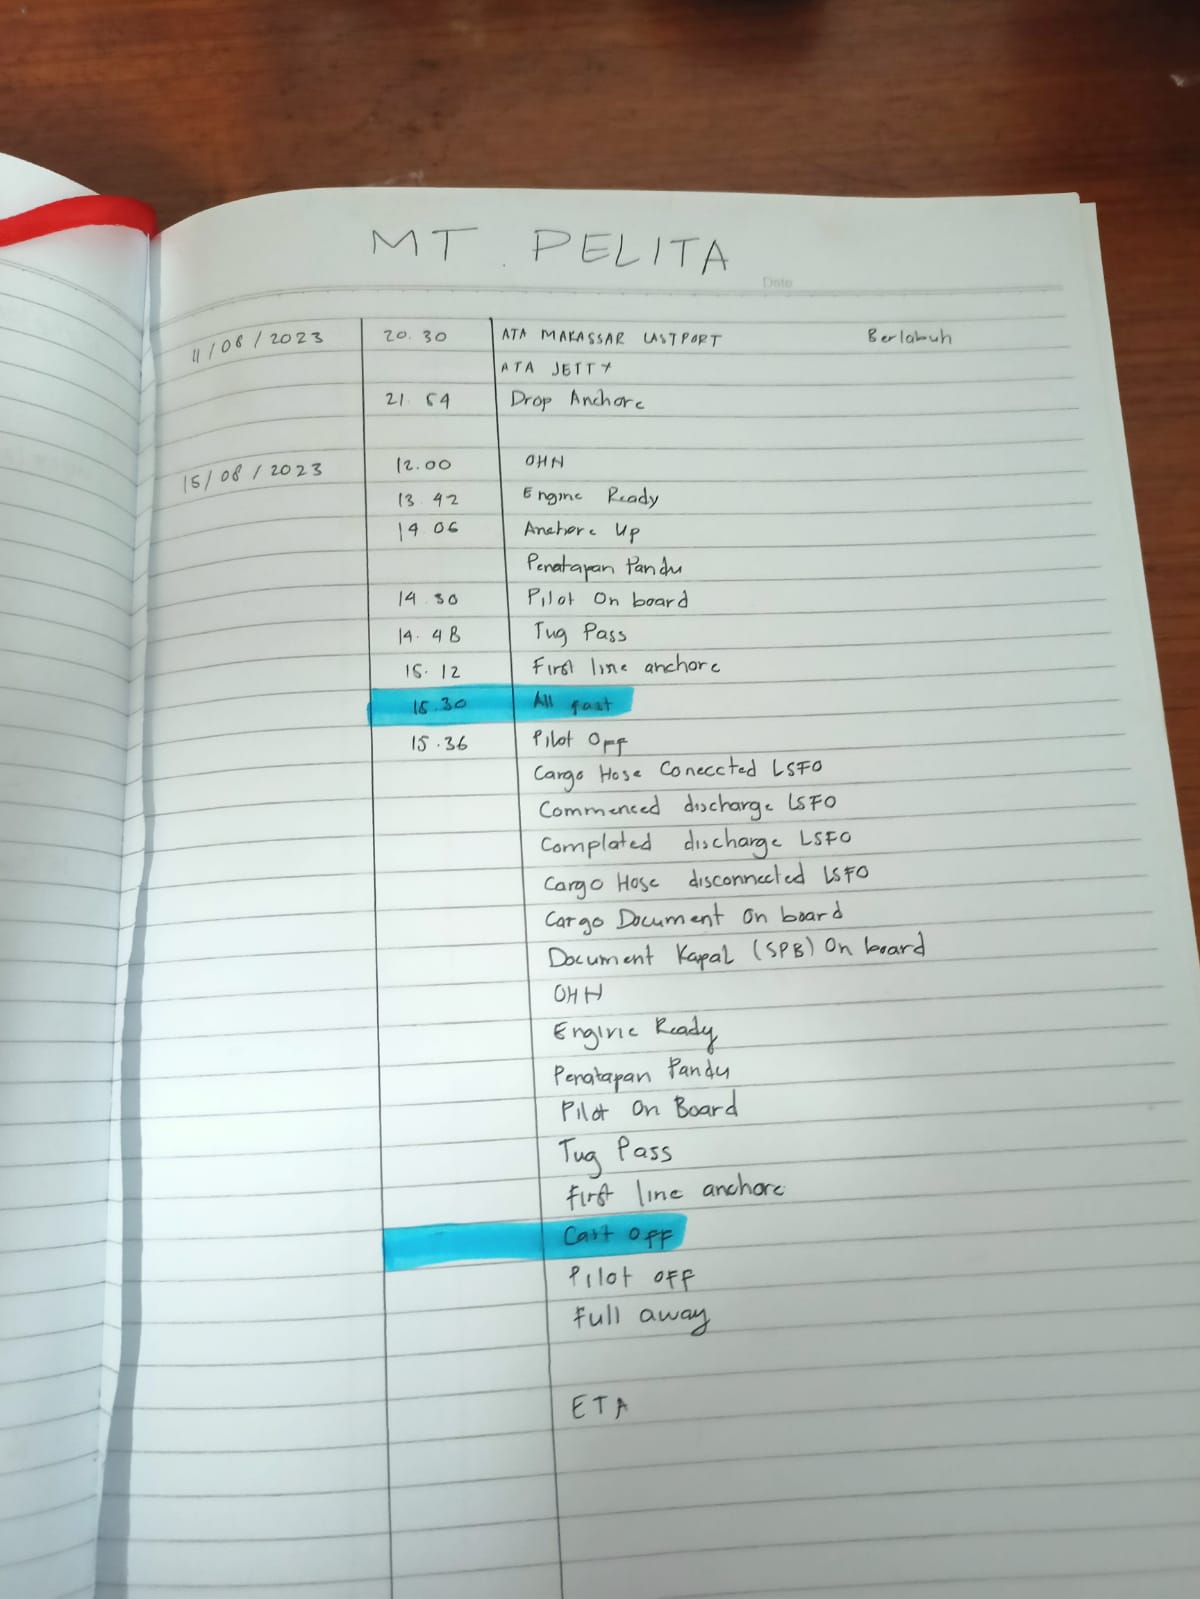 MT. PELITA
Date
11/08/2023 20.30 ATA MAKASSAR LASTPORT Berlabuh
ATA JETTY
21.54 Drop Anchore
15/08/2023 12.00 OHN
13.42 Engine Ready
14.06 Anchore Up
Penatapan Pandu
14.30 Pilot On board
14.48 Tug Pass
15.12 First line anchore
15.30 All fast
15.36 Pilot Off
Cargo Hose Coneccted LSFO
Commenced discharge LSFO
Complated discharge LSFO
Cargo Hose disconnected LSFO
Cargo Document On board
Document Kapal (SPB) On board
OHN
Engine Ready
Penatapan Pandu
Pilot On Board
Tug Pass
First line anchore
Cast Off
Pilot OFF
Full away
ETA